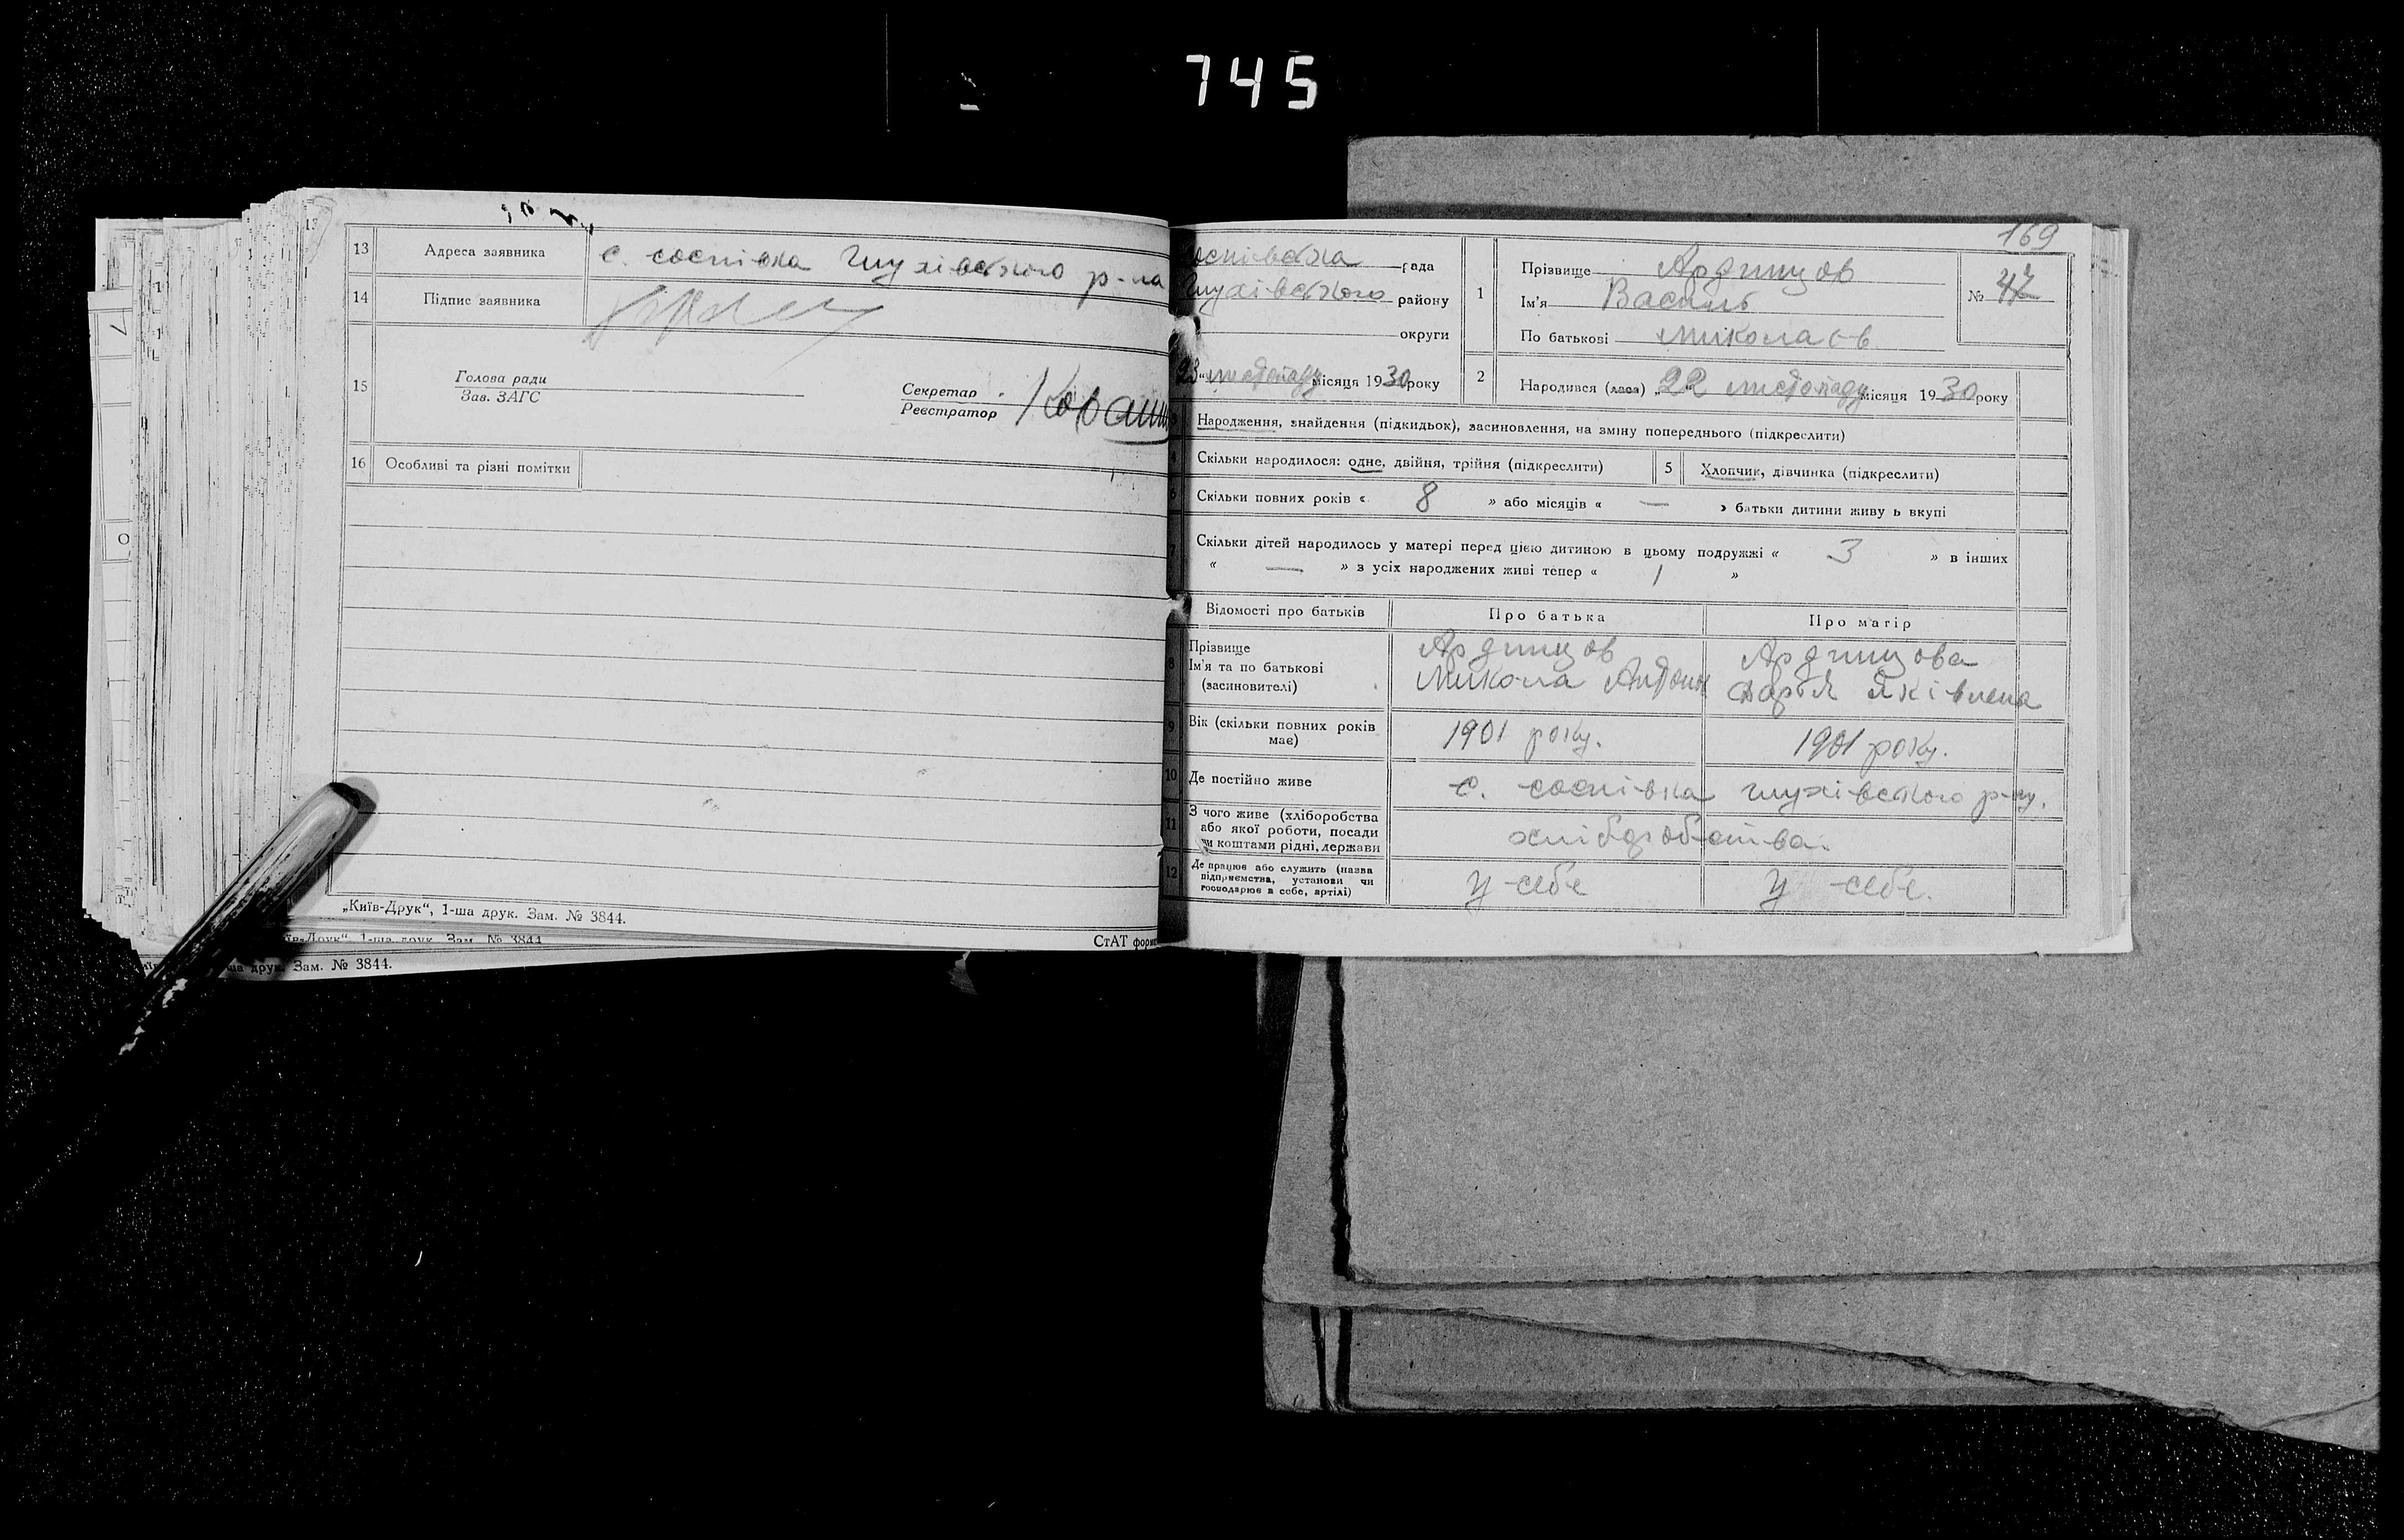 745
13 Адреса заявника с. соснівка Глухівського р-на
14 Підпис заявника
15 Голова ради
Зав. ЗАГС
Секретар
Реєстратор
16 Особливі та різні помітки
„Київ-Друк“, 1-ша друк. Зам. № 3844.
СтАТ форм
ша друк. Зам. № 3844.
169
оснівська рада
Глухівського району
округи
23 листопаду місяця 1930 року
1 Прізвище Ардинцов
Ім'я Василь
По батькові Миколаєв
№ 47
2 Народився (лася) „22 листопаду місяця 1930 року
3 Народження, знайдення (підкидьок), засиновлення, на зміну попереднього (підкреслити)
4 Скільки народилося: одне, двійня, трійня (підкреслити) 5 Хлопчик, дівчинка (підкреслити)
6 Скільки повних років « 8 » або місяців « — » батьки дитини живу ь вкупі
7 Скільки дітей народилось у матері перед цією дитиною в цьому подружжі « 3 » в інших
« — » з усіх народжених живі тепер « 1 »
Відомості про батьків Про батька Про матір
8 Прізвище Ардинцов Ардинцова
Ім'я та по батькові Микола Антон Дарья Яківлена
(засиновителі)
9 Вік (скільки повних років має) 1901 року. 1901 року.
10 Де постійно живе с. соснівка глухівського р-ну.
11 З чого живе (хліборобства
або якої роботи, посади
чи коштами рідні, держави хліборобства.
12 Де працює або служить (назва
підприємства, установи чи
господарює в себе, артілі) У себе У себе.